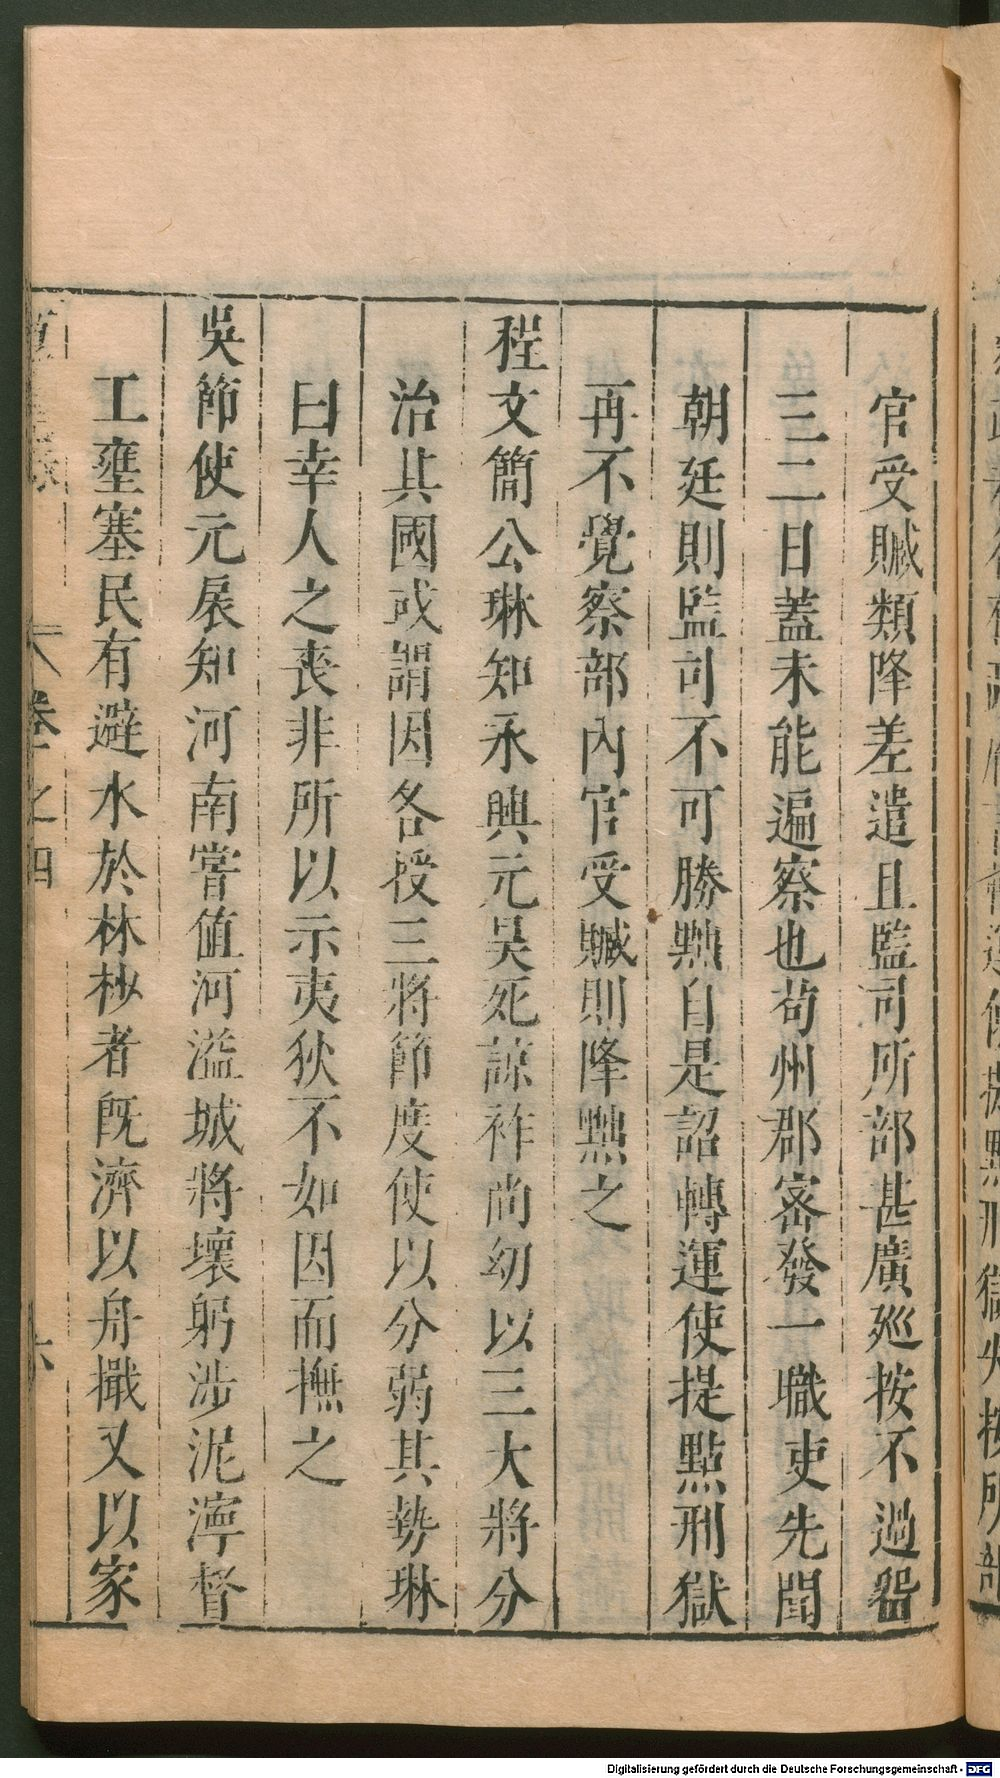 官受贓類降差遣且監司所部甚廣廵按不過留
三二日蓋未能遍察也苟州郡密發一職吏先聞
朝廷則監司不可勝黜自是詔轉運使提點刑獄
再不覺察部內官受贓則降黜之
程文簡公琳知永興元吴死諒祚尚幼以三大將分
治其國或謂因各授三將節度使以分弱其勢琳
曰幸人之喪非所以示夷狄不如因而撫之
吳節使元扆知河南嘗值河溢城將壞躬涉泥濘督
工壅塞民有避水於林杪者旣濟以舟檝又以家
卷之四
六
Digitalisierung gefördert durch die Deutsche Forschungsgemeinschaft - DFG